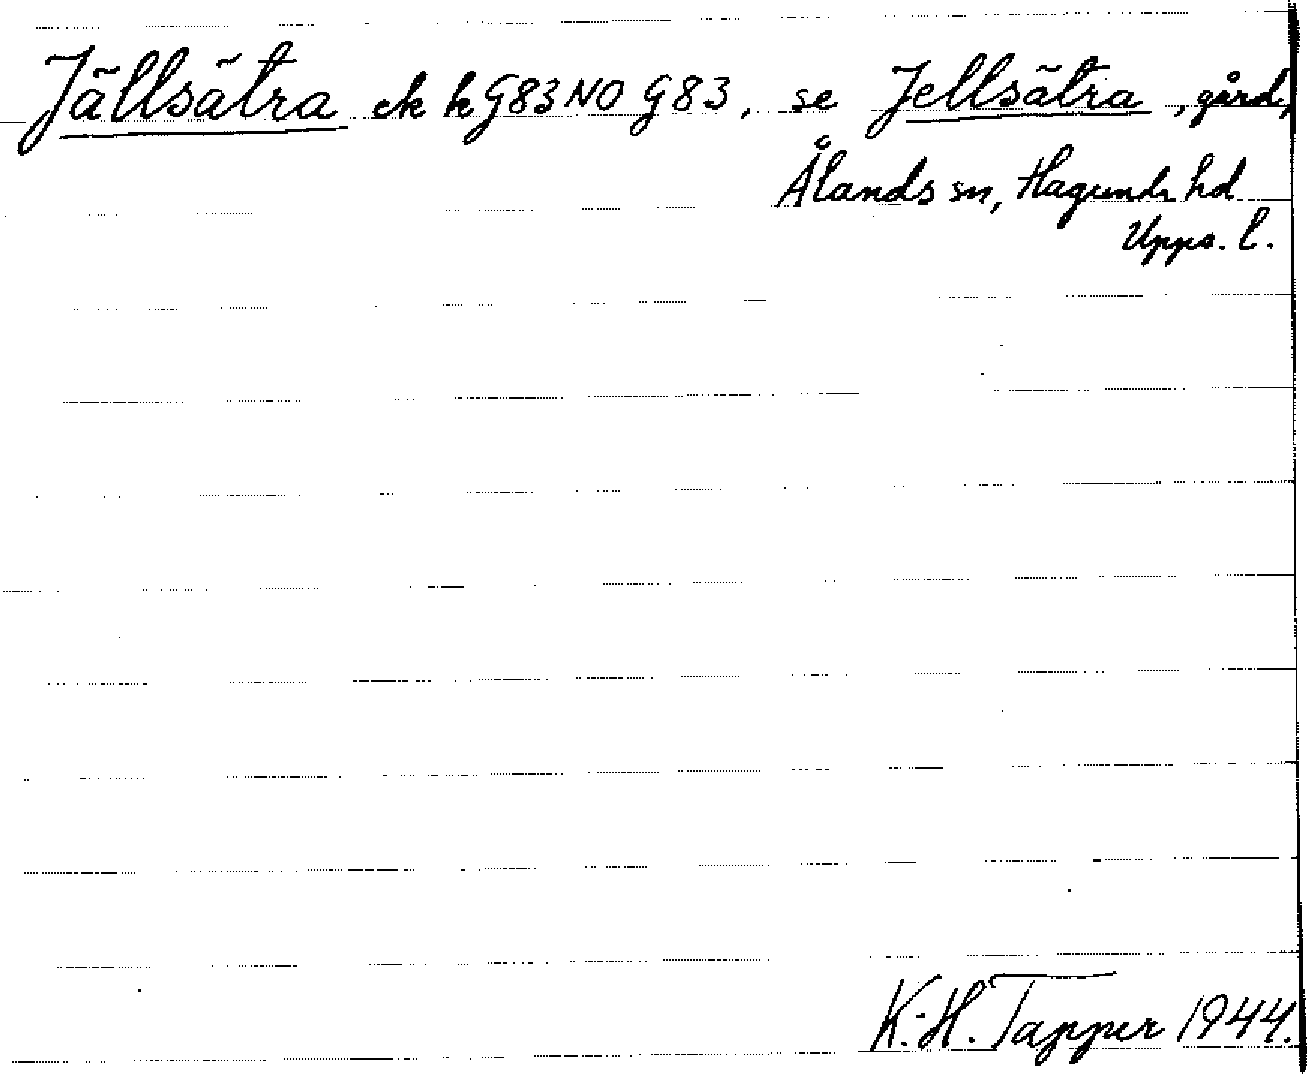 Jällsätra ek k G83NO G83, se Jellsätra, gård,
Ålands sn, Hagunda hd
Upps. l.
K.-H. Tapper 1944.